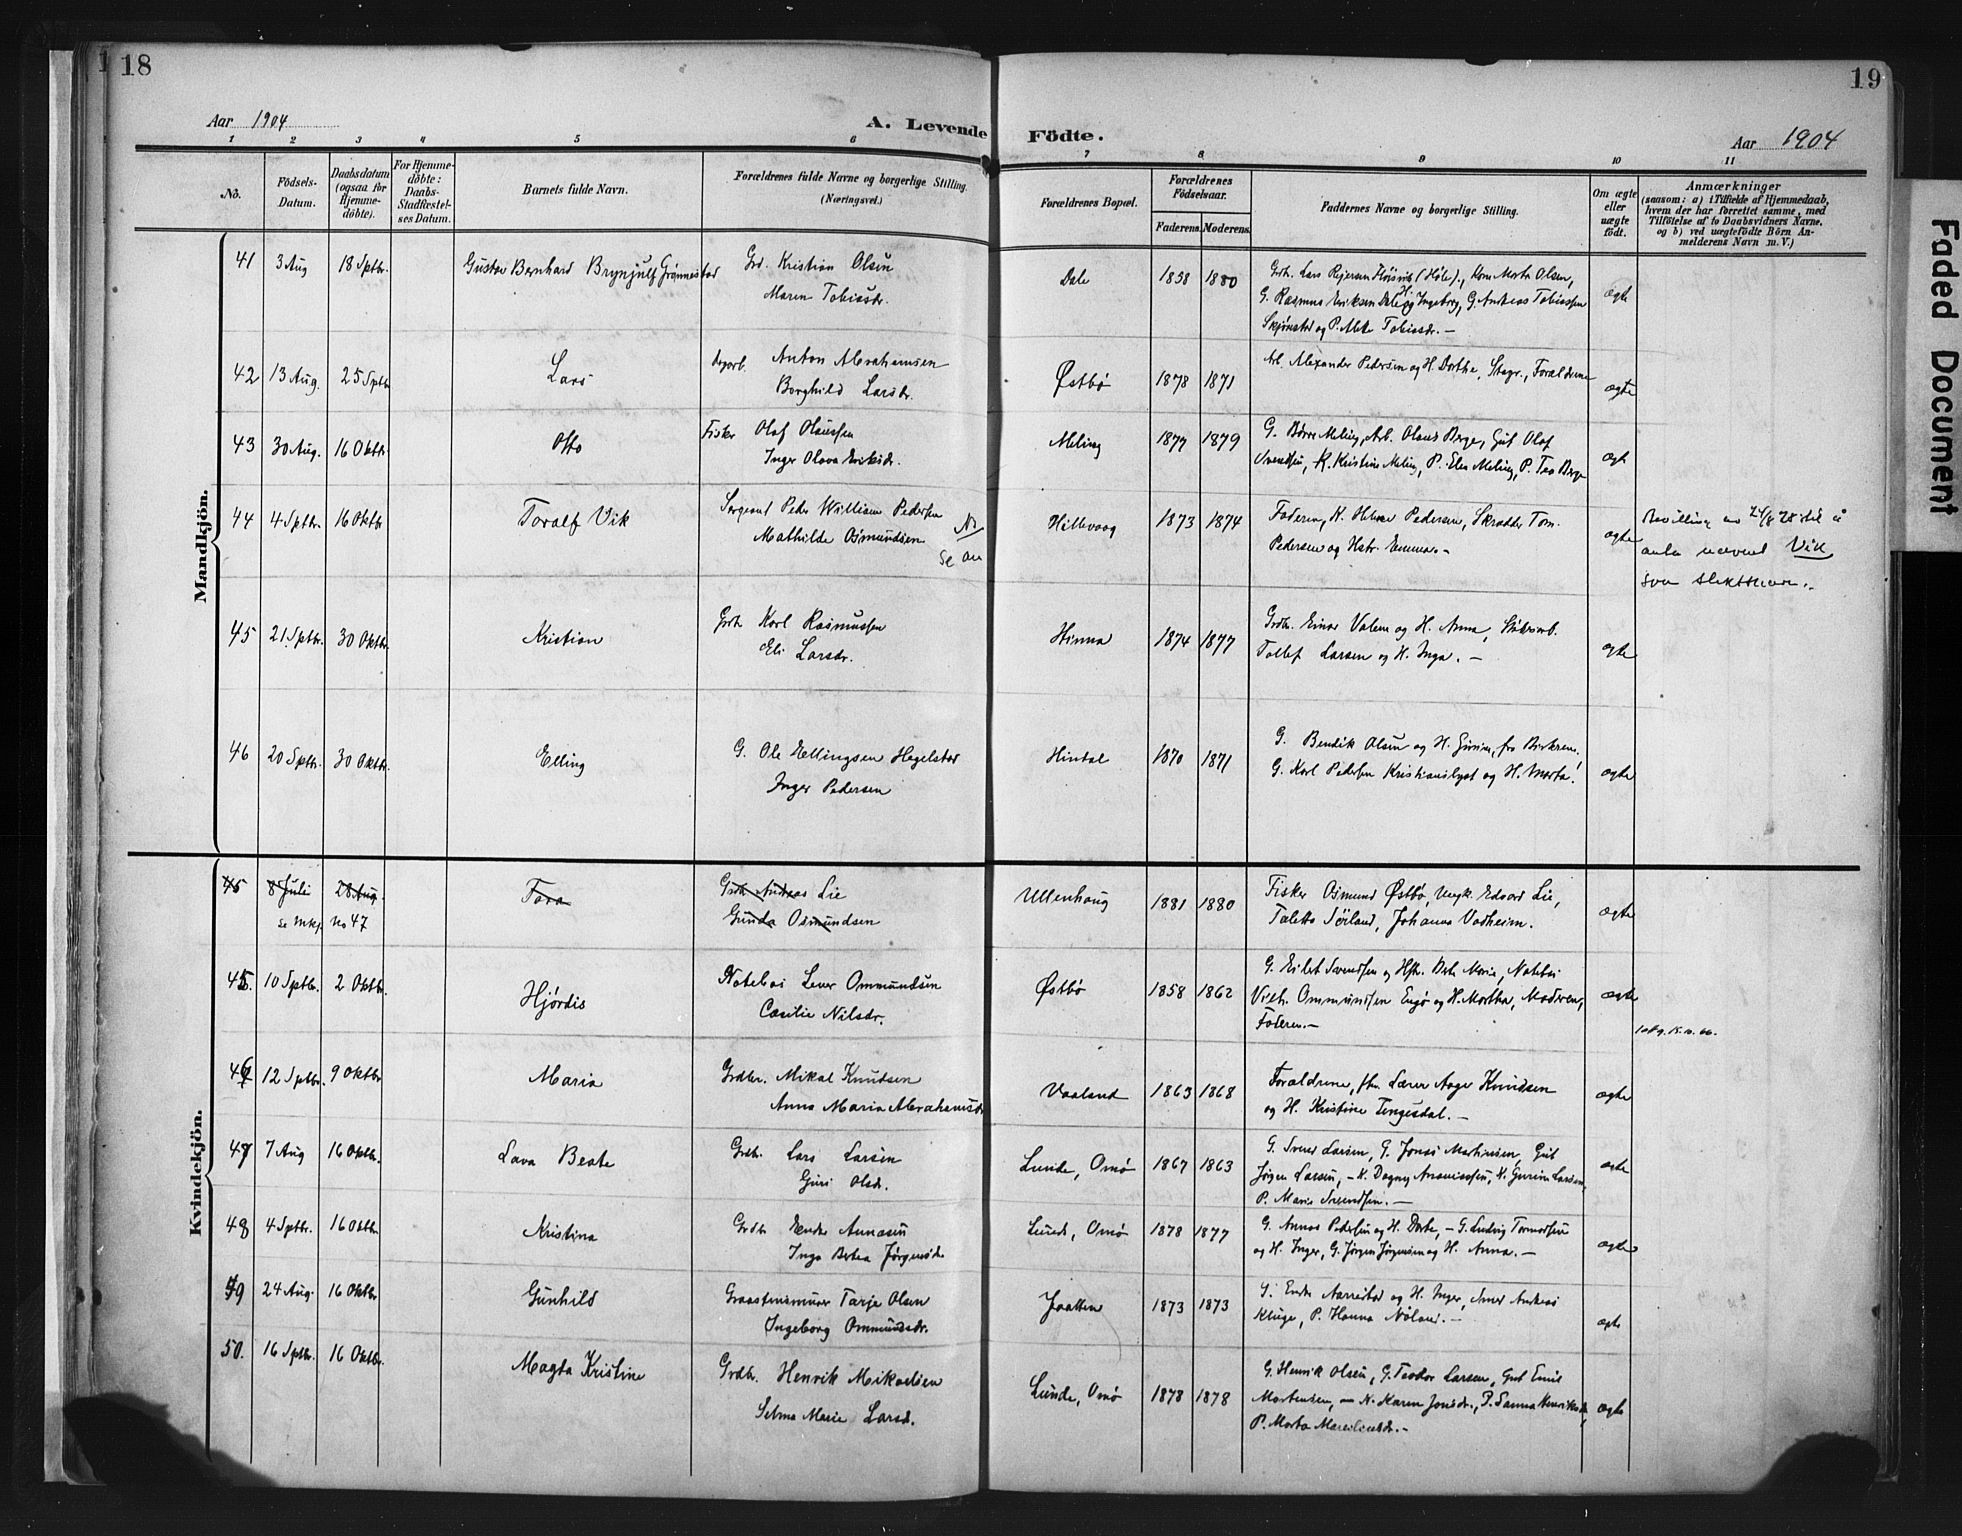 18
Aar 1904
A. Levende
1 2 3 4 5 6
No.
Födsels-
Datum.
Daabsdatum
(ogsaa for
Hjemme-
döbte).
For Hjemme-
döbte:
Daabs-
Stadfæstel-
ses Datum.
Barnets fulde Navn.
Forældrenes fulde Navne og borgerlige Stilling.
(Næringsvei.)
19
Födte.
Aar 1904
7 8 9 10 11
Forældrenes Bopæl.
Forældrenes
Födselsaar.
Faderens. Moderens.
Faddernes Navne og borgerlige Stilling.
Om ægte
eller
uægte
født.
Anmærkninger
(saasom: a) i Tilfælde af Hjemmedaab,
hvem der har forrettet samme, med
Tilföielse af to Daabsvidners Navne.
og b) ved uægtefödte Börn An-
melderens Navn m. V.)
Mandkjön.
41 3 Aug 18 Sptb. Gustav Bernhard Brynjulf Grønnestad Grd. Kristian Olsen
Maren Tobiasdr.
Dale 1858 1880 Grdb. Lars Rejersen Høisvik (Høle)., Kone Marta Olsen,
G. Rasmus Eriksen Dale og H. Ingeborg, G. Andreas Tobiassen
og P. Tobiasdr. —
ægte
42 13 Aug. 25 Sptb. Lars Anton Abrahamsen
Borghild Larsdr.
Østbø 1878 1871 Arb. Alexander Pedersen og H. Dorthe, Forældrene
ægte
43 30 Aug. 16 Oktb. Otto Fisker Olaf Olaussen
Inger Olava Eriksdr.
Meling 1877 1879 G. Børre Meling, Arb. Olaus Berge, Gut Olaf
Svendsen, K. Kristine Meling, P. Elen Meling, P. Tea Berge
ægte
44 4 Sptb. 16 Oktb. Toralf Vik Sergeant Peder William Pedersen
Mathilde Osmundsen
Se an
Hillevaag 1873 1874 Faderen, K. Helene Pedersen, Skrædder Tom.
Pedersen og Hstr. Emma. —
ægte
Bevilling av 24/8 25 til å
anta navnet Vik
som slektsnavn.
45 21 Sptb. 30 Oktb. Kristian Grdb. Karl Rasmussen
Eli Larsdr.
Hinna 1874 1877 Grdb. Einar Valen og H. Anna,
Tollef Larsen og H. Inga. —
ægte
46 20 Sptb. 30 Oktb. Elling G. Ole Ellingsen Hegelstad
Inger Pedersen
Hindal 1870 1871 G. Bendik Olsen og H. Gurine, fra Birkrem.
G. Karl Pedersen Kristianslyst og H. Marta.
ægte
Kvindekjön.
45 8 Juli 28 Aug. Tora Grdb. Andreas Lie
Se Mkj. No 47 Gunda Osmundsen
Ullenhaug 1881 1880 Fisker Osmund Østbø, Ungk. Edvard Lie,
Taletta Söiland, Johanna Vadheim.
ægte
45. 10 Sptb. 2 Oktb. Hjördis Notebas Sever Ommundsen
Cæcilie Nilsdr.
Østbø 1858 1862 G. Eilet Svendsen og Hstr. Berte Marie, Notebas
Vilh. Ommundsen Engø og H. Martha, Moderen,
Faderen. —
ægte
46 12 Sptb. 9 Oktbr Maria Grdbr. Mikal Knudsen
Anna Maria Abrahamsdr.
Vaaland 1863 1868 Forældrene, fhv. Lærer Aage Knudsen
og H. Kristine Tengesdal. —
ægte
47 7 Aug 16 Oktb. Lava Beate Grdb. Lars Larsen
Guri Olsdr.
Lunde, Omø 1867 1863 G. Sven Larsen, G. Jonas Martinsen, Gut
Jörgen Larsen, — K. Dagny Ananiassen, K. Gurine Larsen,
P. Marie Svendsen. —
ægte
48 4 Sptb. 16 Oktb. Kristina Grdb. Endre Annasen
Inga Bertea Jørgensdr.
Lunde, Omø 1878 1877 G. Annas Pedersen og H. Dorte, — G. Ludvig Tormodsen
og H. Inger, G. Jørgen Jørgensen og H. Anna. —
ægte
49 24 Aug. 16 Oktb. Gunhild Graastensmurer Tarje Olsen
Ingeborg Ommundsdr.
Jaatten 1873 1873 G. Endre Aarrestad og H. Inger, Andreas
Kluge, P. Hanna Nøland. —
ægte
50. 16 Sptb. 16 Oktb. Magda Kristine Grdb. Henrik Mikaelsen
Selma Marie Larsdr.
Lunde, Omø 1878 1878 G. Henrik Olsen, G. Teodor Larsen, Gut Emil
Mortensen, — K. Karen Jonsdr., P. Sanna Henriksdr.
P. Marta —
ægte
Faded Document